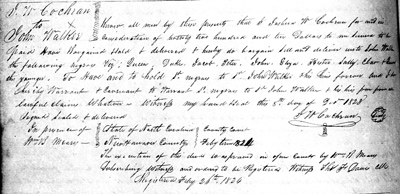 J. W. Cochran
to
John Walker
Know all men by these presents that I Joshua W Cochran for and in
consideration of twenty two hundred and ten Dollars to me in hand
paid Have Bargained Sold & delivered & hereby do bargain sell and deliver unto John Walker
the following negroes Viz; Duke, Jacob, John, Eliza, Hester, Sally, Clar
the younger. To have and to hold Sd negroes to Sd John Walker & his heirs forever and I do
hereby Warrant & Covenant to Warrant Sd negroes to Sd John Walker & his heirs from all
lawful claims Whatever Witness my hand this 5th day of 1824
Signed Sealed & delivered
J W Cochran
In presence of
Wm B Meares
State of North Carolina
New Hanover County
County Court
Feby term 1824
The execution of the deed is proved in open Court by Wm B Meares
Subscribing Witness and ordered to be Registered Witness Thos F Davis Clk
Registered Feby 24th 1824